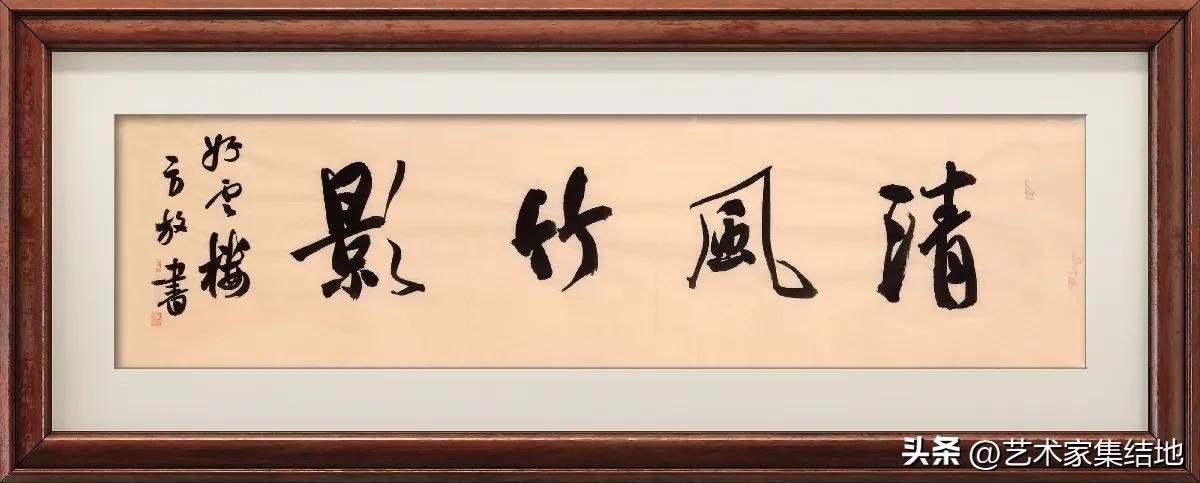 清風竹影
好雲樓
方放書
头条 @艺术家集结地